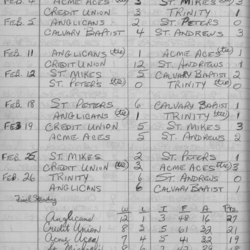 FEB. 4 ACME ACES (tie) 3 ST. MIKES (tie) 3
CREDIT UNION 3 TRINITY 1
FEB. 5 ANGLICANS 2 ST. PETERS
CALVARY BAPTIST 4 ST. ANDREWS 3
FEB. 11 ANGLICANS (tie) ACME ACES (tie)
CREDIT UNION 12 ST. ANDREWS 1
FEB. 12 ST. MIKES 5 CALVARY BAPTIST 2
ST. PETER'S (tie) 0 TRINITY (tie) 0
FEB. 18 ST. PETERS 6 CALVARY BAPTIST 1
ANGLICANS (tie) 1 TRINITY (tie) 1
FEB 19 CREDIT UNION 5 ST. MIKES 3
ACME ACES 4 ST. ANDREWS 2
FEB. 25 ST. MIKES 2 ST. PETER'S 1
CREDIT UNION (tie) 2 ACME ACES (tie)
FEB. 26 TRINITY 6 ST. ANDREWS 0
ANGLICANS 6 CALVARY BAPTIST
Final Standing
W L T F A Pts
Anglicans 12 1 3 48 16 27
Credit Union 8 3 5 61 32 21
Acme Aces 7 4 5 41 32